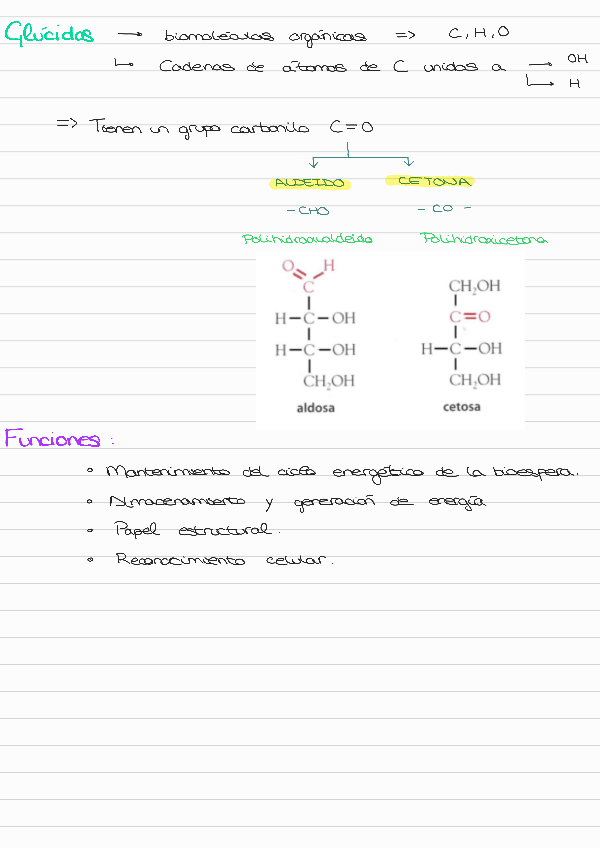 Glúcidos → biomoléculas orgánicas => C, H, O
↳ Cadenas de átomos de C unidas a → OH
↳ H
=> Tienen un grupo carbonilo C=O
ALDEIDO CETONA
-CHO -CO-
Polihidroxialdeido Polihidroxicetona
O H
C
H-C-OH
H-C-OH
CH₂OH
aldosa
CH₂OH
C=O
H-C-OH
CH₂OH
cetosa
Funciones:
• Mantenimiento del ciclo energético de la bioesfera.
• Almacenamiento y generación de energía
• Papel estructural.
• Reconocimiento celular.